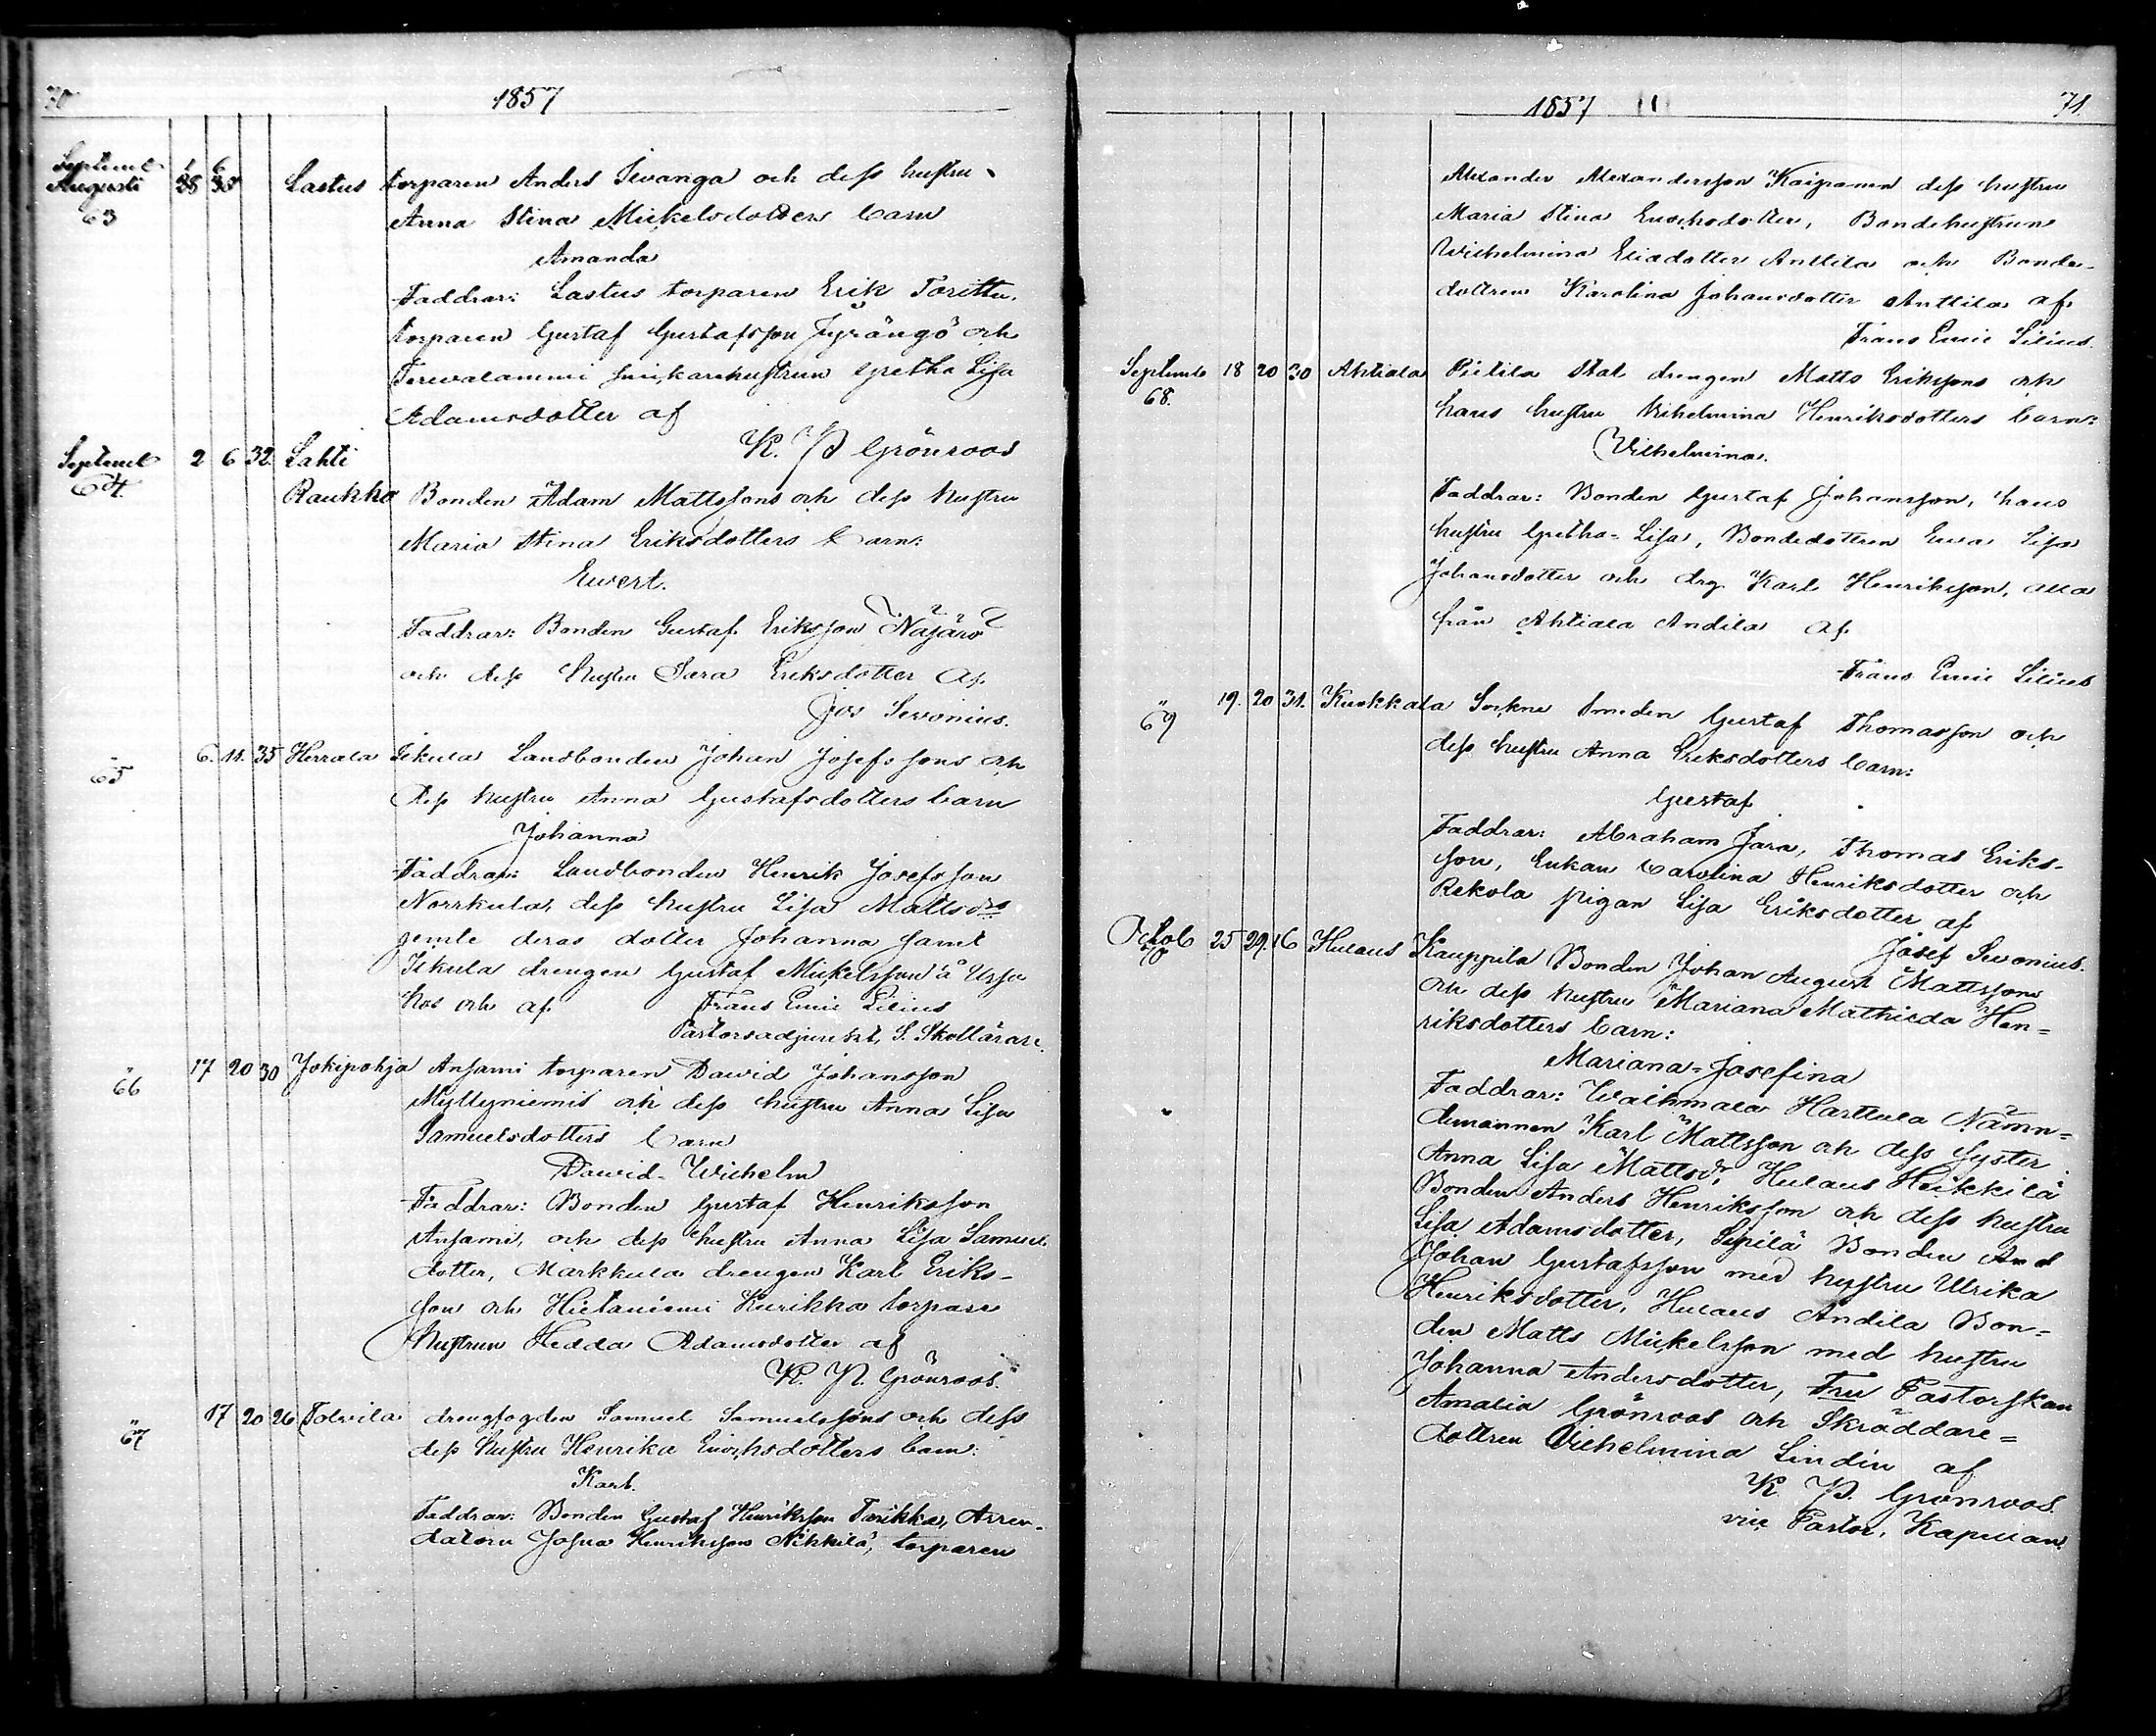 70
1857
Septemb
Augusti
63
1 6
28 30 35
Lastus torparen Anders Sevanga och dess hustru
Anna Stina Mickelsdotters barn
Amanda
Faddrar: Lastus torparen Erik Torittu,
torparen Gustaf Gustafsson Jyrängö och
Terwalammi hustrun Gretha Lisa
Adamsdotter af
K. P. Grönroos
Septemb 2 6 32 Lahti
64. Raukka Bonden Adam Mattssons och dess hustru
Maria Stina Eriksdotters barn:
Ewert.
Faddrar: Bonden Gustaf Eriksson Näjärö
och dess hustru Sara Eriksdotter af
Jos Sevonius.
" 6. 11. 35 Herrala Iskula Landbonden Johan Josefssons och
65 dess hustru Anna Gustafsdotters barn
Johanna
Faddrar: Landbonden Henrik Josefsson
Norrkula, dess hustru Lisa Mattsdr
jemte deras dotter Johanna samt
Iskula drengen Gustaf Mickelsson å Ussa
kos och af Frans Emil Lilius
Pastorsadjunkt, S. Skollärare.
" 17 20 30 Jokipohja Ansami torparen Dawid Johansson
66 Myllyniemis och dess hustru Anna Lisa
Samuelsdotters barn
Dawid-Wilhelm
Faddrar: Bonden Gustaf Henriksson
Ansami, och dess hustru Anna Lisa Samuels
dotter, Markkula drengen Karl Eriks-
son och Hietaniemi Kurikka torpare
hustrun Hedda Adamsdotter af
K. P. Grönroos.
" 17 20 26 Tolvila drengfogden Samuel Samuelssons och dess
67 dess hustru Henrika Enochsdotters barn:
Karl.
Faddrar: Bonden Gustaf Henriksson Parikka, Arren-
datorn Josua Henriksson Nikkilä, torparen
1857 71.
Alexander Alexandersson Kaipanen dess hustru
Maria Stina Enochsdotter, Bondehustrun
Wilhelmina Eliædotter Anttila och Bonde-
dottren Karolina Johansdotter Anttila af
Frans Emil Lilius.
Septemb 18 20 30 Ahtiala Pietila Stat drengen Matts Erikssons och
68. hans hustru Wilhelmina Henriksdotters barn:
Wilhelmina.
Faddrar: Bonden Gustaf Johansson, hans
hustru Gretha-Lisa, Bondedottren Ewa Lisa
Johansdotter och drg Karl Henriksson, alla
från Ahtiala Andila af
Frans Emil Lilius
" 19. 20 31. Kuokkala Sockne Smeden Gustaf Thomasson och
69 dess hustru Anna Eriksdotters barn:
Gustaf
Faddrar: Abraham Jara, Thomas Eriks-
son, Enkan Carolina Henriksdotter och
Rekola pigan Lisa Eriksdotter af
Josef Sevonius.
Octob 25 29. 16 Hulaus Kauppila Bonden Johan August Mattssons
70 och dess hustru Mariana Mathilda Hen=
riksdotters barn:
Mariana-Josefina
Faddrar: Waihmala Harttula Nämn=
demannen Karl Mattsson och dess syster
Anna Lisa Mattsdr, Hulaus Heikkilä
Bonden Anders Henriksson och dess hustru
Lisa Adamsdotter, Sipilä Bonden And
Johan Gustafsson med hustru Ulrika
Henriksdotter, Hulaus Andila Bon=
den Matts Mickelsson med hustru
Johanna Andersdotter, Fru Pastorskan
Amalia Grönroos och Skräddare=
dottren Wilhelmina Lindén af
K. P. Grönroos.
vice Pastor, Kapellan.